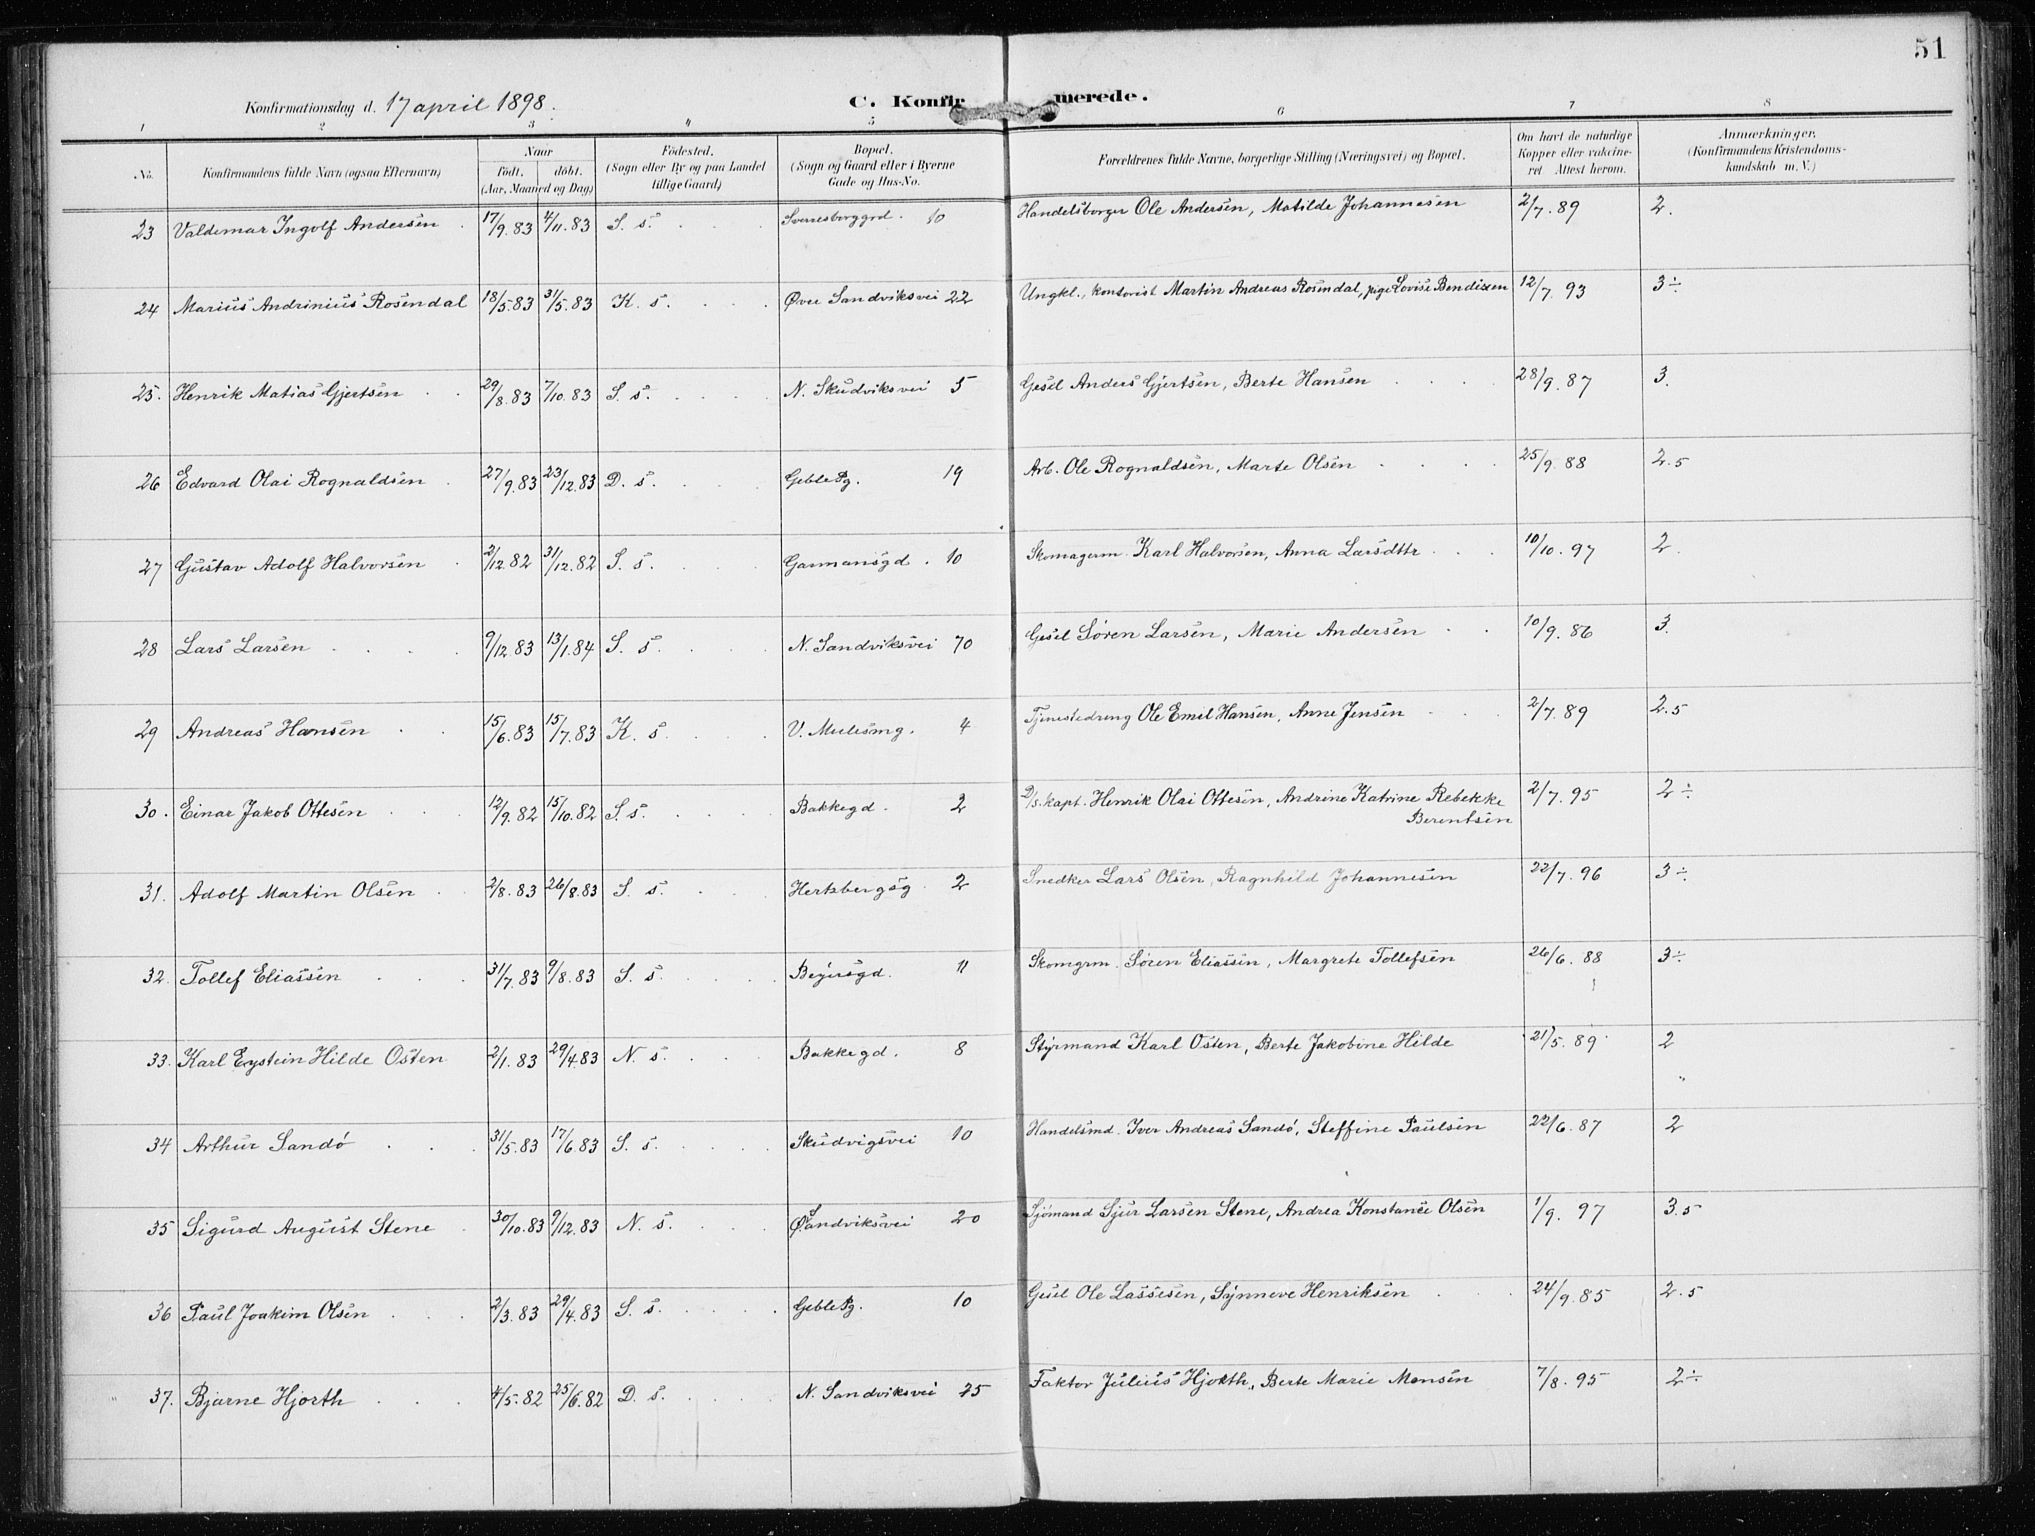 51
Konfirmationsdag d. 17 april 1898.
C. Konfir merede.
1 2 3 4 5 6 7 8
No. Konfirmandens fulde Navn (ogsaa Efternavn) Naar födt. döbt. (Aar, Maaned og Dag) Födested. (Sogn eller By og paa Landet tillige Gaard) Bopæl. (Sogn og Gaard eller i Byerne Gade og Hus-No. Forældrenes fulde Navne, borgerlige Stilling (Næringsvei) og Bopæl. Om havt de naturlige Kopper eller vakcineret Attest herom. Anmærkninger. (Konfirmandens Kristendomskundskab m. V.)
23 Valdemar Ingolf Andersen 17/9.83 4/11.83 S. s. Sverresborggrd. 10 Handelsborger Ole Andersen, Matilde Johannesen 2/7.89 2.
24 Marius Andrinius Rosendal 18/5.83 31/5.83 K. s. Øvre Sandviksvei 22 Ungkl., kontorist Martin Andreas Rosendal, pige Lovise Bendixen 12/7.93 3÷
25. Henrik Matias Gjertsen 29/8.83 7/10.83 S. s. N. Skudviksvei 5 Gesel Anders Gjertsen, Berte Hansen 28/9.87 3.
26 Edvard Olai Rognaldsen 27/9.83 23/12.83 D. s. Geble Pg. 19 Arb. Ole Rognaldsen, Marte Olsen 25/9.88 2.5
27 Gustav Adolf Halvorsen 2/12.82 31/12.82 S. s. Garmansgd. 10 Skomagerm. Karl Halvorsen, Anna Larsdttr 10/10.97 2.
28 Lars Larsen 9/12.83 13/1.84 S. s. N. Sandviksvei 70 Gesel Søren Larsen, Marie Andersen 10/9.86 3.
29 Andreas Hansen 15/6.83 15/7.83 K. s. V. Mulesmg. 4 Tjenestedreng Ole Emil Hansen, Anne Jensen 2/7.89 2.5
30. Einar Jakob Ottesen 12/9.82 15/10.82 S. s. Bakkegd. 2 D/s. kapt. Henrik Olai Ottesen, Andrine Katrine Rebekke 2/7.95 2÷
Berentsen
31. Adolf Martin Olsen 2/8.83 26/8.83 S. s. Hertzbergsg. 2 Snedker Lars Olsen, Ragnhild Johannesen 22/7.96 3÷
32. Tollef Eliassen 31/7.83 9/8.83 S. s. Beyersgd. 11 Skomgrm. Søren Eliassen, Margrete Tollefsen 26/6.88 3÷
33. Karl Eystein Hilde Osten 2/1.83 29/4.83 N. s. Bakkegd. 8 Styrmand Karl Osten, Berte Jakobine Hilde 21/5.89 2
34 Arthur Sandö 31/5.83 17/6.83 S. s. Skudvigsvei 10 Handelsmd. Iver Andreas Sandö, Steffine Paulsen 22/6.87 2
35 Sigurd August Stene 30/10.83 9/12.83 N. s. Ø. Sandviksvei 20 Sjömand Sjur Larsen Stene, Andrea Konstance Olsen 1/9.97 3.5
36 Paul Joakim Olsen 2/3.83 29/4.83 S. s. Geble Pg. 10 Gesel Ole Lassesen, Synneve Henriksen 24/9.85 2.5
37. Bjarne Hjorth 4/5.82 25/6.82 D. s. N. Sandviksvei 25 Faktor Julius Hjorth, Berte Marie Monsen 7/8.95 2÷